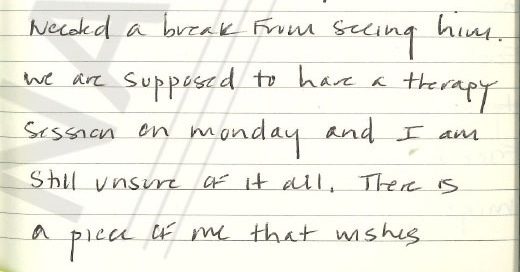 Needed a break from seeing him.
we are supposed to have a therapy
session on monday and I am
still unsure of it all. There is
a piece of me that wishes